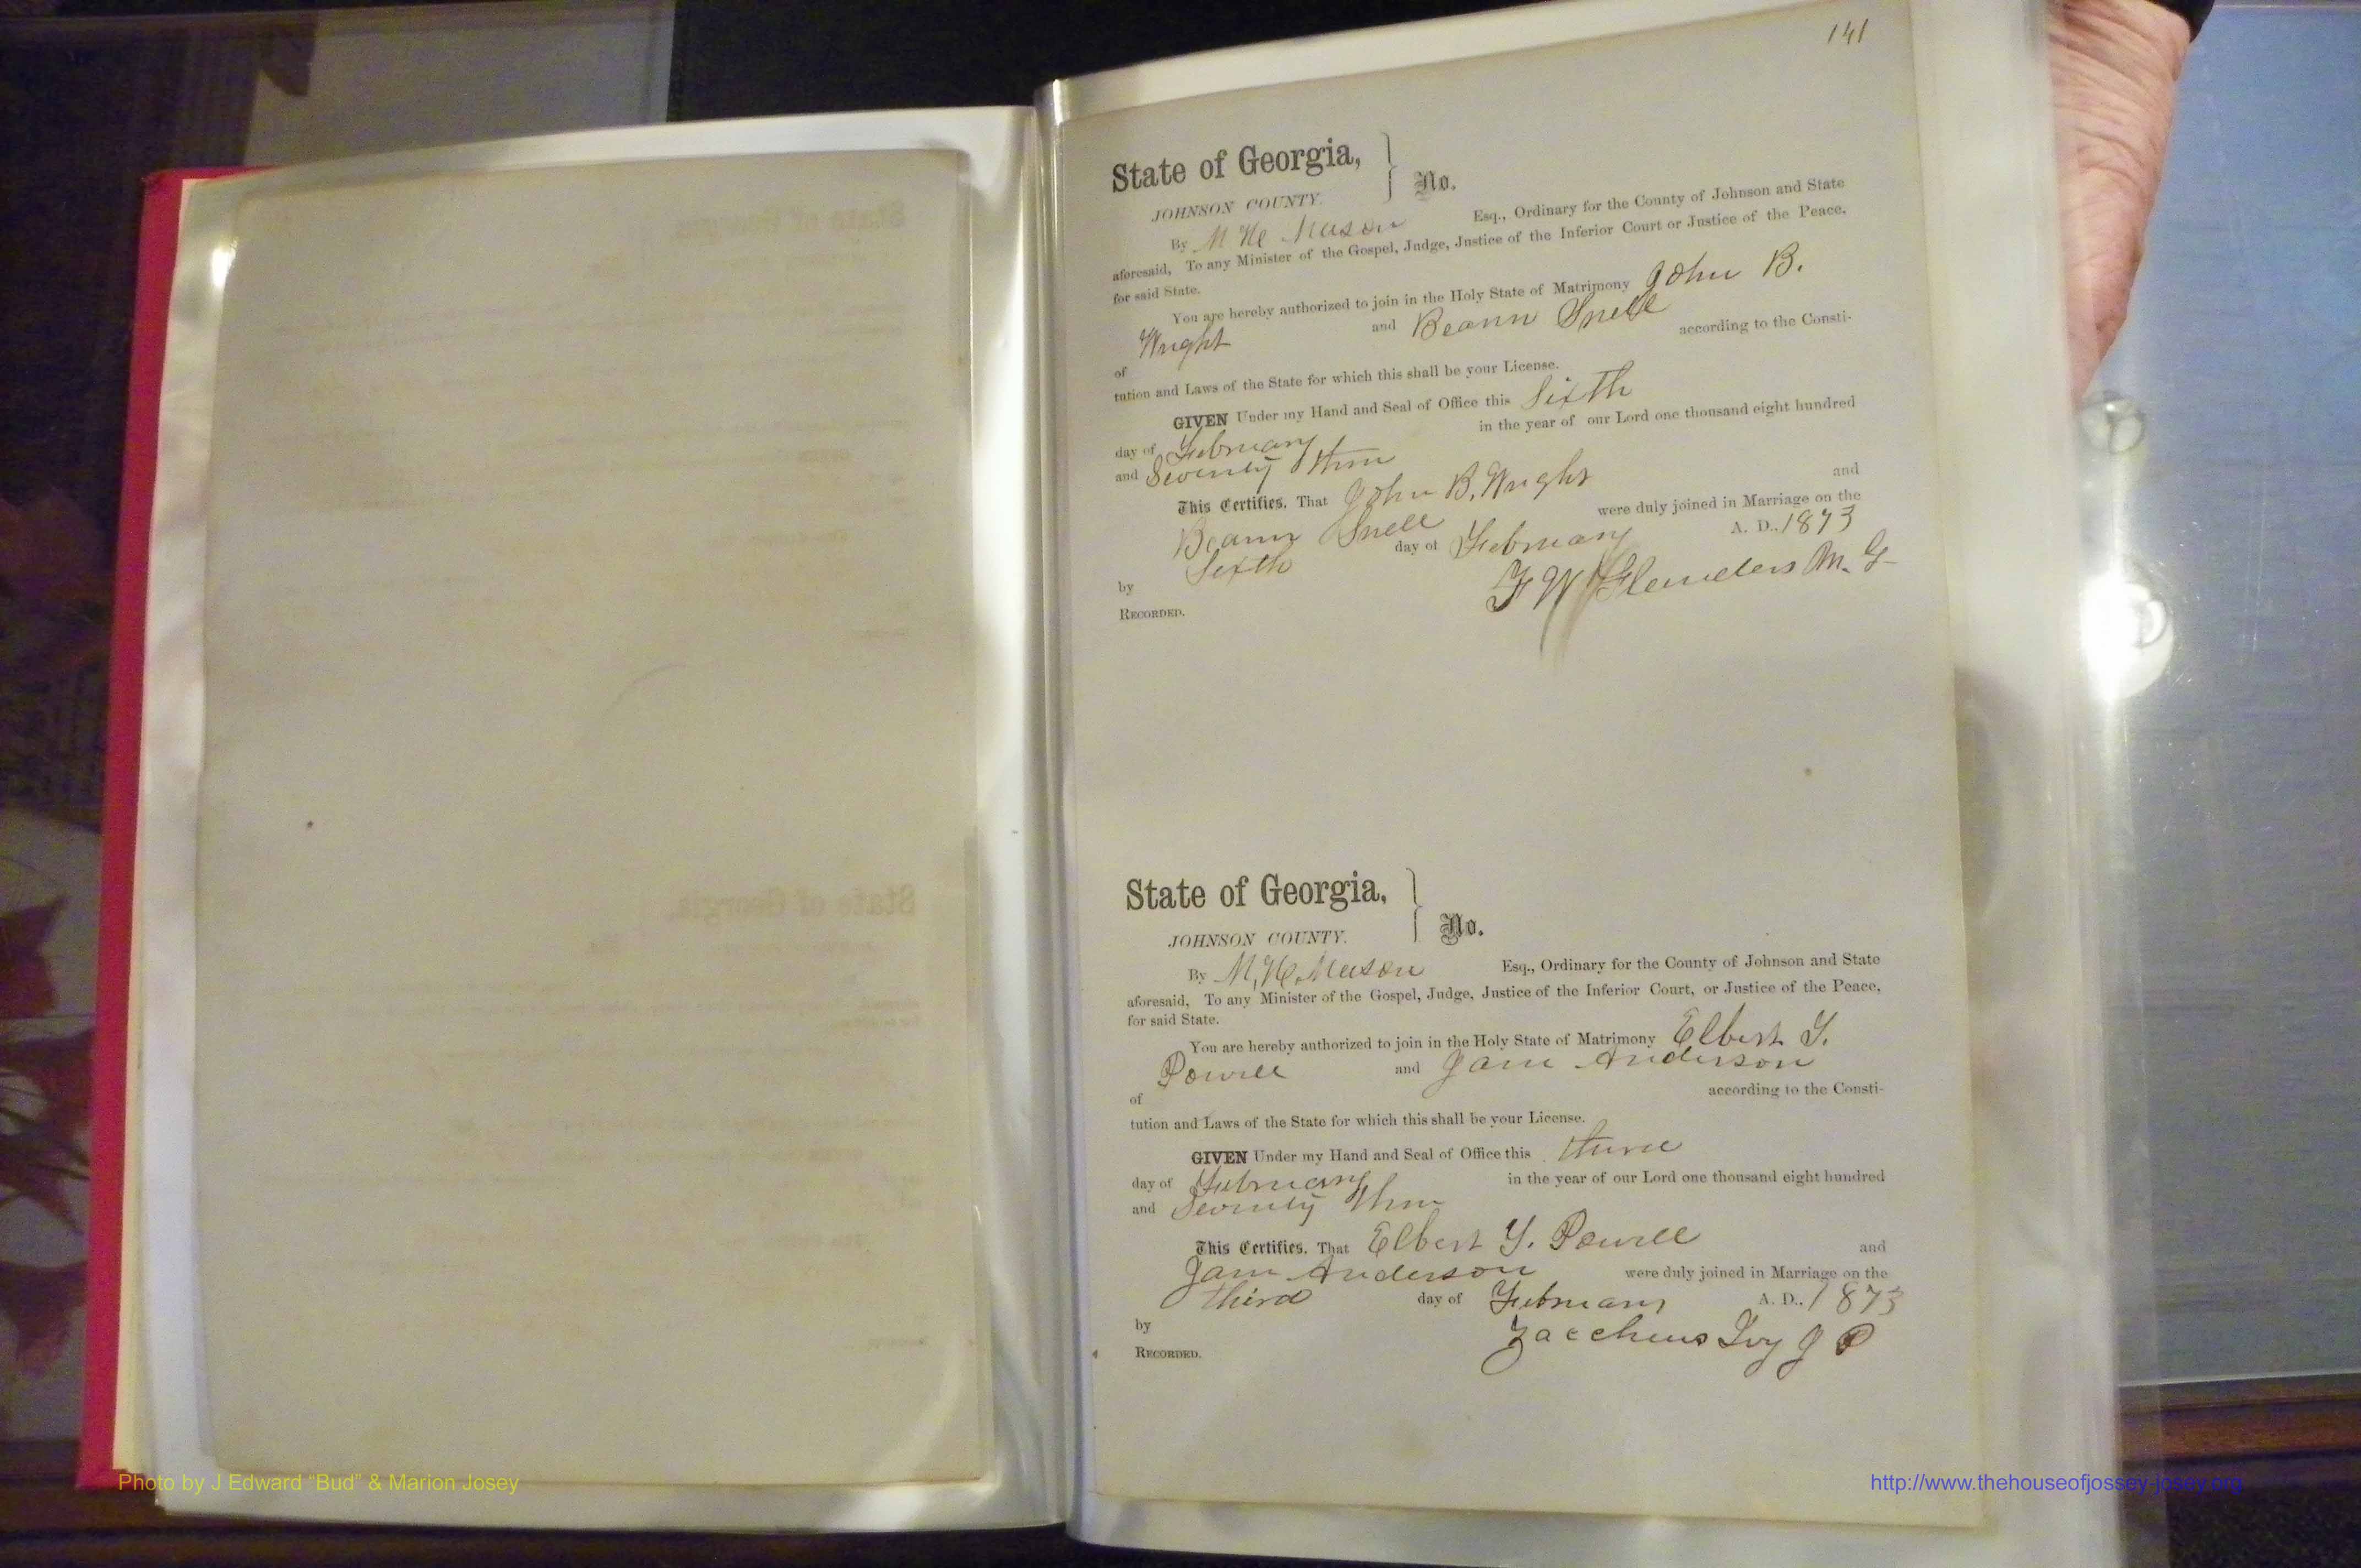 141
State of Georgia,
JOHNSON COUNTY.
No.
By M H Mason Esq., Ordinary for the County of Johnson and State
aforesaid, To any Minister of the Gospel, Judge, Justice of the Inferior Court or Justice of the Peace,
for said State.
You are hereby authorized to join in the Holy State of Matrimony John B.
Wright and Beann Snell
of according to the Consti-
tution and Laws of the State for which this shall be your License.
GIVEN Under my Hand and Seal of Office this Sixth
day of February in the year of our Lord one thousand eight hundred
and Seventy three
This Certifies, That John B. Wright and
Beann Snell were duly joined in Marriage on the
Sixth day of February A. D., 1873
by F W Flanders M. G
RECORDED.
State of Georgia,
JOHNSON COUNTY.
No.
By M, H, Mason Esq., Ordinary for the County of Johnson and State
aforesaid, To any Minister of the Gospel, Judge, Justice of the Inferior Court, or Justice of the Peace,
for said State.
You are hereby anthorized to join in the Holy State of Matrimony Elbert Y.
Powell and Jane Anderson
of according to the Consti-
tution and Laws of the State for which this shall be your License.
GIVEN Under my Hand and Seal of Office this three
day of February in the year of our Lord one thousand eight hundred
and Seventy three
This Certifies, That Elbert Y. Powell and
Jane Anderson were duly joined in Marriage on the
third day of February A. D., 1873
by Zaccheus Ivy J P
RECORDED.
Photo by J Edward “Bud” & Marion Josey
http://www.thehouseofjossey-josey.org